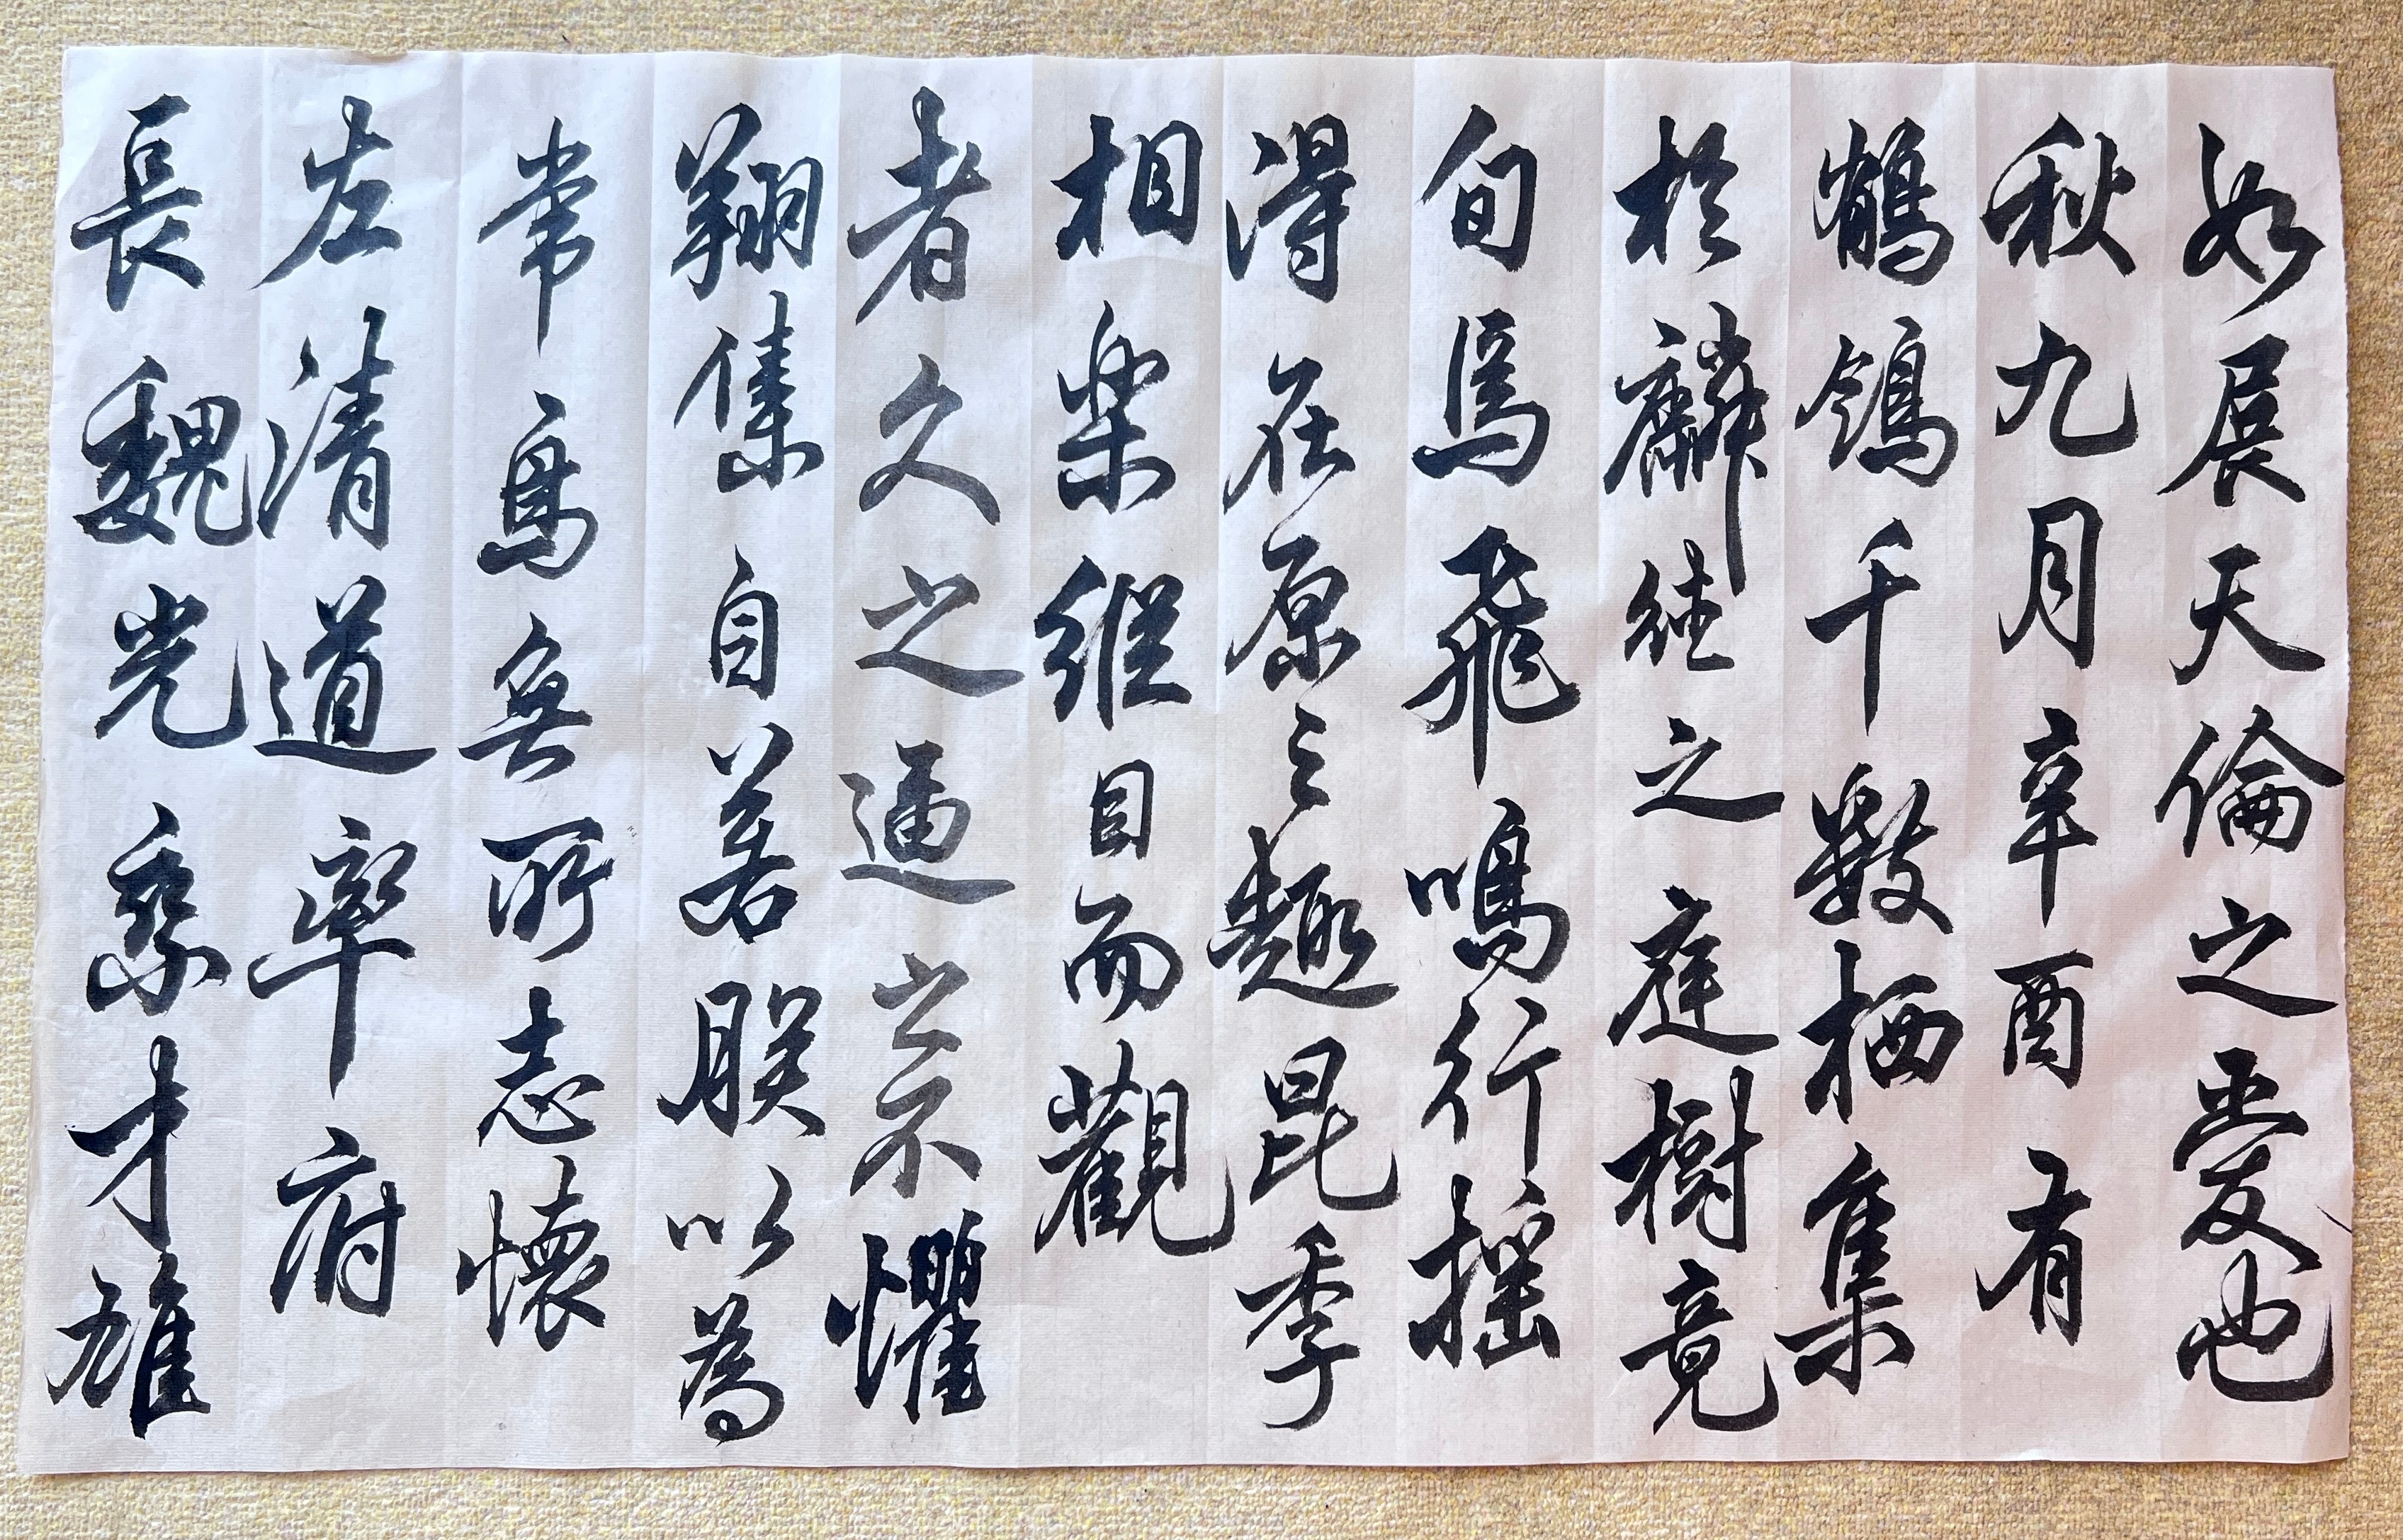 如展天倫之愛也
秋九月辛酉有
鶺鴒千數栖集
於麟德之庭樹竟
旬焉飛鳴行搖
得在原之趣昆季
相樂縱目而觀
者久之逼之不懼
翔集自若朕以為
常鳥無所志懷
左清道率府
長魏光乘才雄